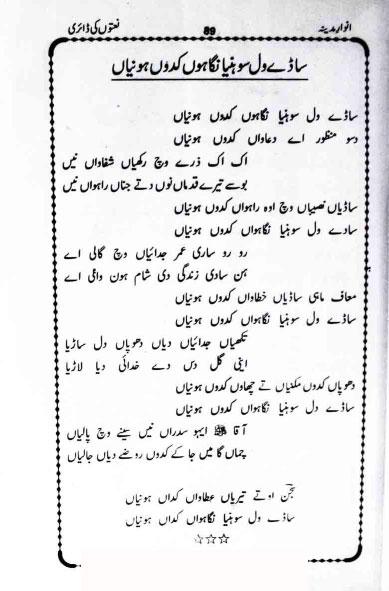 انوارِ مدینہ 89 نعتوں کی ڈائری
ساڈے ول سوہنیا نگاہوں کدوں ہونیاں
ساڈے ول سوہنیا نگاہواں کدوں ہونیاں
دسو منظور اے دعاواں کدوں ہونیاں
اک اک ذرے وچ رکھیاں شفاواں نیں
بوسے تیرے قدماں نوں دتے جناں راہواں نیں
ساڈیاں نصیباں وچ اوہ راہواں کدوں ہونیاں
سادے ول سوہنیا نگاہواں کدوں ہونیاں
رو رو ساری عمر جدائیاں وچ گالی اے
ہن سادی زندگی دی شام ہون والی اے
معاف ماہی ساڈیاں خطاواں کدوں ہونیاں
ساڈے ول سوہنیا نگاہواں کدوں ہونیاں
تکھیاں جدائیاں دیاں دھوپاں دل ساڑیا
اپنی گل دس دے خدائی دیا لاڑیا
دھوپاں کدوں مکنیاں تے چھاوں کدوں ہونیاں
ساڈے ول سوہنیا نگاہواں کدوں ہونیاں
آقا ﷺ ایہو سدراں نیں سینے وچ پالیاں
چماں گا میں جا کے کدوں روضے دیاں جالیاں
اوتے تیریاں عطاواں کداں ہونیاں
ساڈے ول سوہنیا نگاہواں کداں ہونیاں
☆☆☆